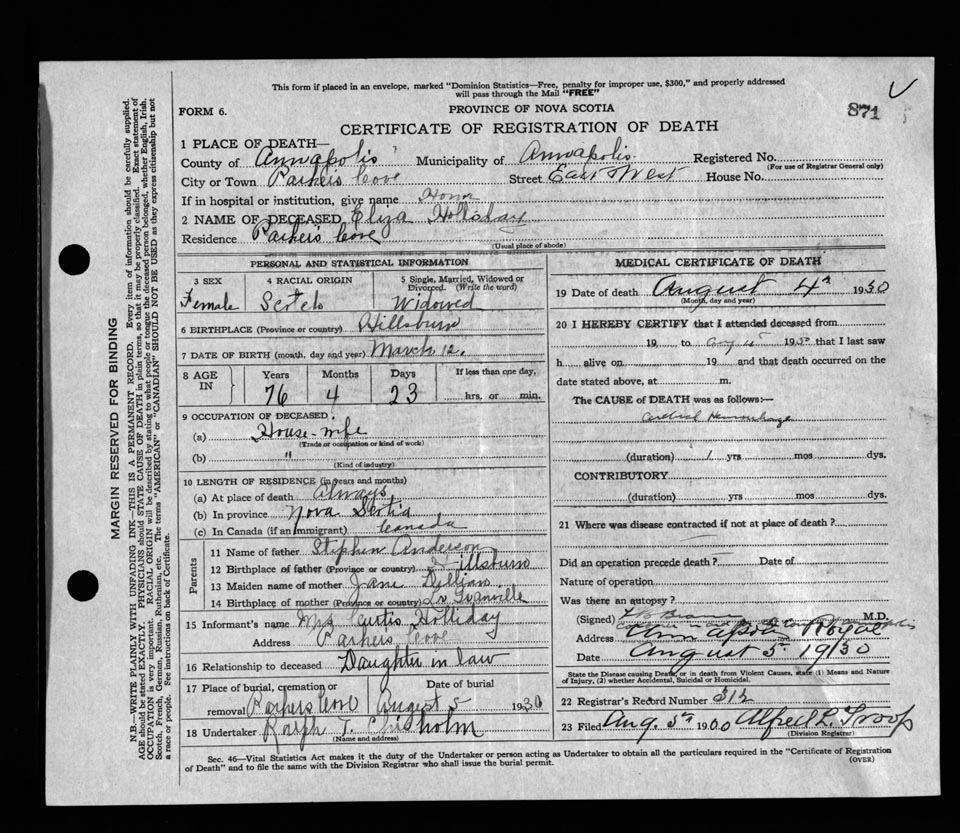 This form if placed in an envelope, marked "Dominion Statistics—Free, penalty for improper use, $300," and properly addressed
will pass through the Mail "FREE"
FORM 6.
PROVINCE OF NOVA SCOTIA
871
CERTIFICATE OF REGISTRATION OF DEATH
1 PLACE OF DEATH—
County of Annapolis Municipality of Annapolis Registered No.
(For use of Registrar General only)
City or Town Parkers Cove Street East West House No.
If in hospital or institution, give name Home
2 NAME OF DECEASED Eliza Holliday
Residence Parker's Cove
(Usual place of abode)
PERSONAL AND STATISTICAL INFORMATION
3 SEX
4 RACIAL ORIGIN
5 Single, Married, Widowed or Divorced. (Write the word)
Female Scotch Widowed
6 BIRTHPLACE (Province or country) Hillsburn
7 DATE OF BIRTH (month, day and year) March 12.
8 AGE IN
Years Months Days If less than one day,
76 4 23 hrs, or min.
9 OCCUPATION OF DECEASED.
(a) House-wife
(Trade or occupation or kind of work)
(b) "
(Kind of industry)
10 LENGTH OF RESIDENCE (in years and months)
(a) At place of death always
(b) In province Nova Scotia
(c) In Canada (if an immigrant) Canada
Parents
11 Name of father Stephen Anderson
12 Birthplace of father (Province or country) Hillsburn
13 Maiden name of mother Jane
14 Birthplace of mother (Province or country) Lr Granville
15 Informant's name Mrs Curtis Holliday
Address Parkers Cove
16 Relationship to deceased Daughter in law
17 Place of burial, cremation or removal Parkers Cove
Date of burial August 5 1930
18 Undertaker Ralph T. Chisholm
(Name and address)
MEDICAL CERTIFICATE OF DEATH
19 Date of death August 4th 1930
(Month, day and year)
20 I HEREBY CERTIFY that I attended deceased from
19 to Aug 4 1930 that I last saw
h alive on 19 and that death occurred on the
date stated above, at m.
The CAUSE of DEATH was as follows:—
Cerebral Hemorrhage
(duration) 1 yrs mos dys.
CONTRIBUTORY
(duration) yrs mos dys.
21 Where was disease contracted if not at place of death?
Did an operation precede death? Date of
Nature of operation
Was there an autopsy?
(Signed) M.D.
Address Annapolis Royal
Date August 5th 19/30
State the Disease causing Death, or in death from Violent Causes, state (1) Means and Nature of Injury, (2) whether Accidental, Suicidal or Homicidal.
22 Registrar's Record Number 312
23 Filed Aug. 5th 1900 Alfred L. Troop
(Division Registrar)
Sec. 46—Vital Statistics Act makes it the duty of the Undertaker or person acting as Undertaker to obtain all the particulars required in the "Certificate of Registration
of Death" and to file the same with the Division Registrar who shall issue the burial permit.
(OVER)
MARGIN RESERVED FOR BINDING
N.B.—WRITE PLAINLY WITH UNFADING INK—THIS IS A PERMANENT RECORD. Every item of information should be carefully supplied.
AGE should be stated EXACTLY. PHYSICIANS should STATE CAUSE OF DEATH in plain terms, so that it may be properly classified. Exact statement of
OCCUPATION is very important. RACIAL ORIGIN will be described by stating to what people or tongue the deceased person belonged, whether English, Irish,
Scotch, French, German, Russian, Ruthenian, etc. The terms "AMERICAN" or "CANADIAN" SHOULD NOT BE USED as they express citizenship but not
a race or people. See instructions on back of Certificate.